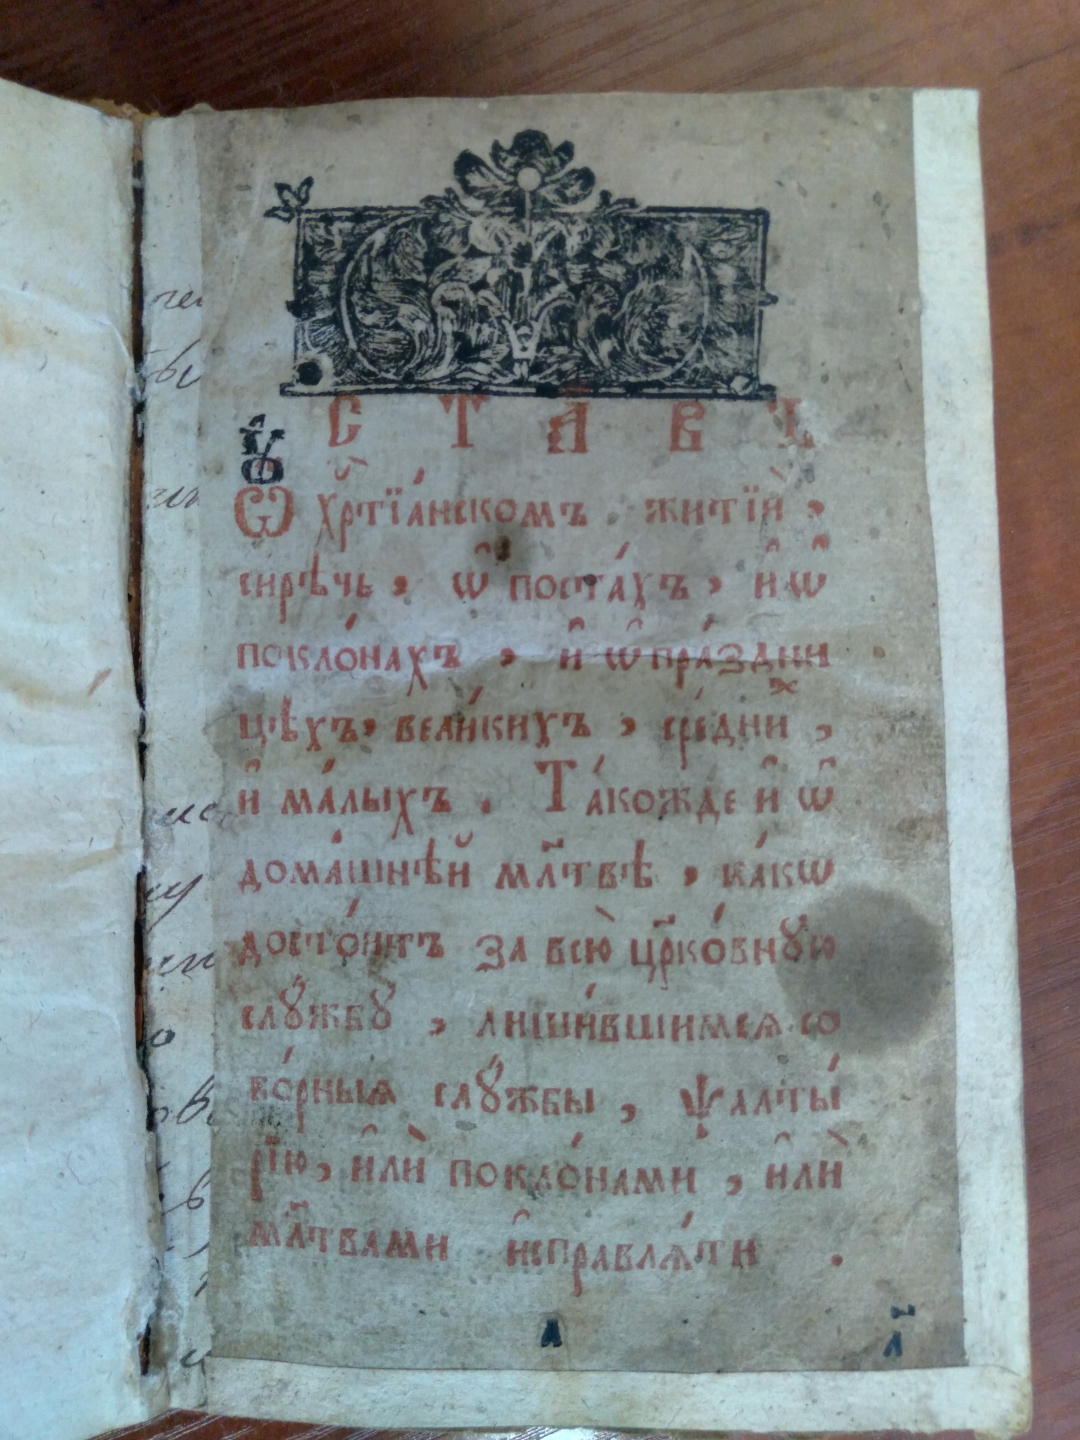 Ꙋ҆СТА́ВЪ
Ѡ҆ хрⷭ҇тїа́нскомъ житїѝ,
сирѣчь, ѡ҆ поста́хъ, и҆ ѡ҆
покло́нахъ, и҆ ѡ҆ пра́здни
цѣхъ, вели́кихъ, сре́дниⷯ,
и҆ ма́лыхъ. Та́кожде и҆ ѡ҆
дома́шнѣй мл҃твѣ, ка́кѡ
досто́итъ за всю̀ цр҃ко́внꙋю
слꙋ́жбꙋ, лиши́вшимсѧ со
бо́рныѧ слꙋ́жбы, ѱалты́
рїю, и҆лѝ покло́нами, и҆лѝ
мл҃твами и҆справлѧ́ти.